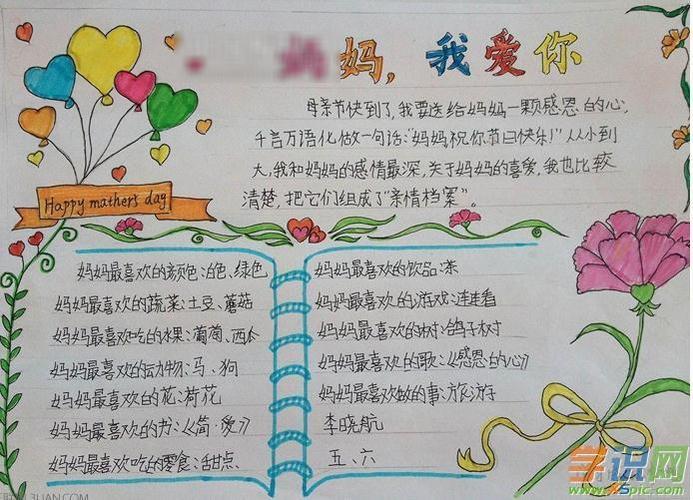 妈妈,我爱你
母亲节快到了,我要送给妈妈一颗感恩的心,
千言万语化做一句话:"妈妈祝你节日快乐!"从小到
大,我和妈妈的感情最深,关于妈妈的喜爱,我也比较
清楚,把它们组成了"亲情档案"。
Happy mather's day
妈妈最喜欢的颜色:白色、绿色
妈妈最喜欢的蔬菜:土豆、蘑菇
妈妈最喜欢吃的水果:葡萄、西瓜
妈妈最喜欢的动物:马、狗
妈妈最喜欢的花:荷花
妈妈最喜欢的书:《简·爱》
妈妈最喜欢吃的零食:甜点
妈妈最喜欢的饮品:茶
妈妈最喜欢的游戏:连连看
妈妈最喜欢的树:鸽子树
妈妈最喜欢的歌:《感恩的心》
妈妈最喜欢做的事:旅游
李晓航
五、六
学识网
www.xspic.com